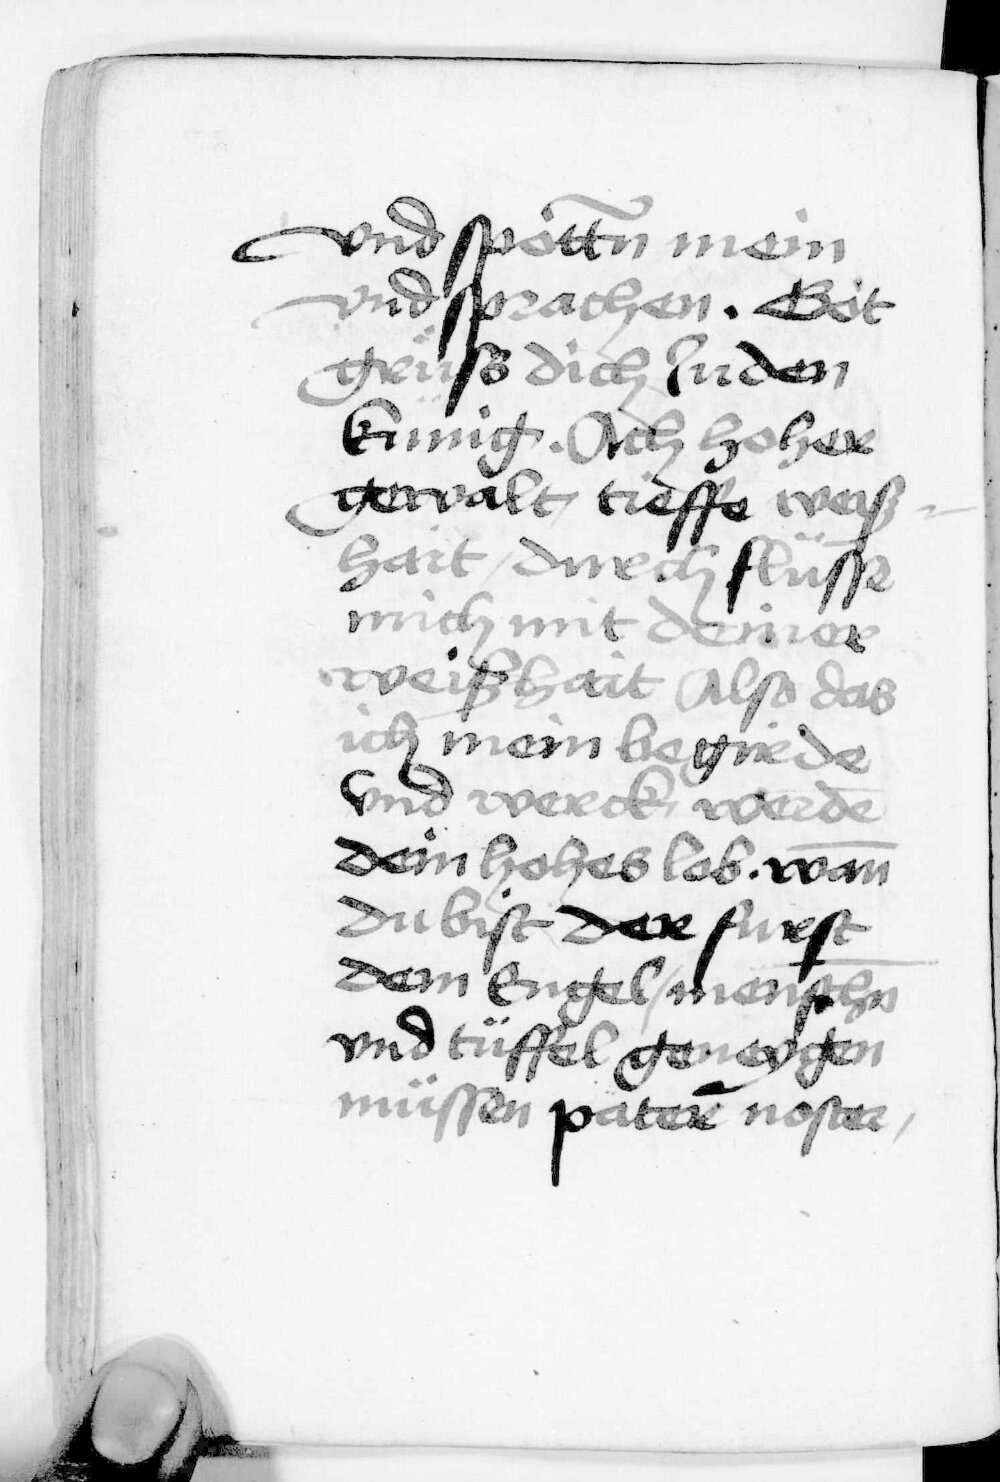 vnd spöttn̄ mein
vnd sprachen. Got
grüss dich Juden
künig. Ach hoher
gewalt, tieffe weiß-
hait / durch flüsse
mich mit deiner
weißhait Also das
ich mein begirde
vnd werck werdē
dein hohes lob. wan̄
du bist der furst
dem Engel / menschn̄
vnd tüffel geneygen
müssen pater̄ noster /